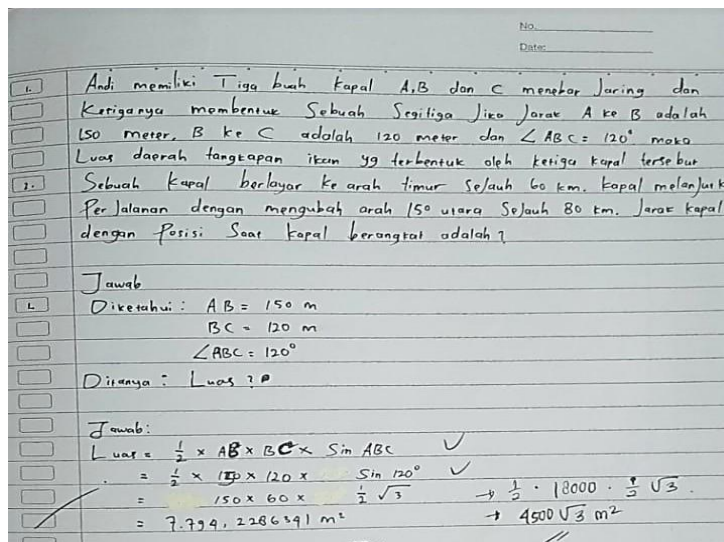 No.
Date:
1. Andi memiliki Tiga buah kapal A,B dan C menebar Jaring dan
Ketiganya membentuk Sebuah Segitiga Jika Jarak A ke B adalah
150 meter, B ke C adalah 120 meter dan ∠ ABC = 120° maka
Luas daerah tangkapan ikan yg terbentuk oleh ketiga kapal tersebut
2. Sebuah kapal berlayar ke arah timur sejauh 60 km. kapal melanjutk
Per Jalanan dengan mengubah arah 150 utara Sejauh 80 km. Jarak kapal
dengan Posisi Saat kapal berangkat adalah ?
Jawab
1. Diketahui : AB = 150 m
BC = 120 m
∠ABC = 120°
Ditanya : Luas ?
Jawab:
Luas = 1/2 × AB × BC × Sin ABC ✓
= 1/2 × 150 × 120 × Sin 120° ✓
= 150 × 60 × 1/2 √3 → 1/2 · 18000 · 1/2 √3.
= 7.794, 2286341 m² → 4500 √3 m²